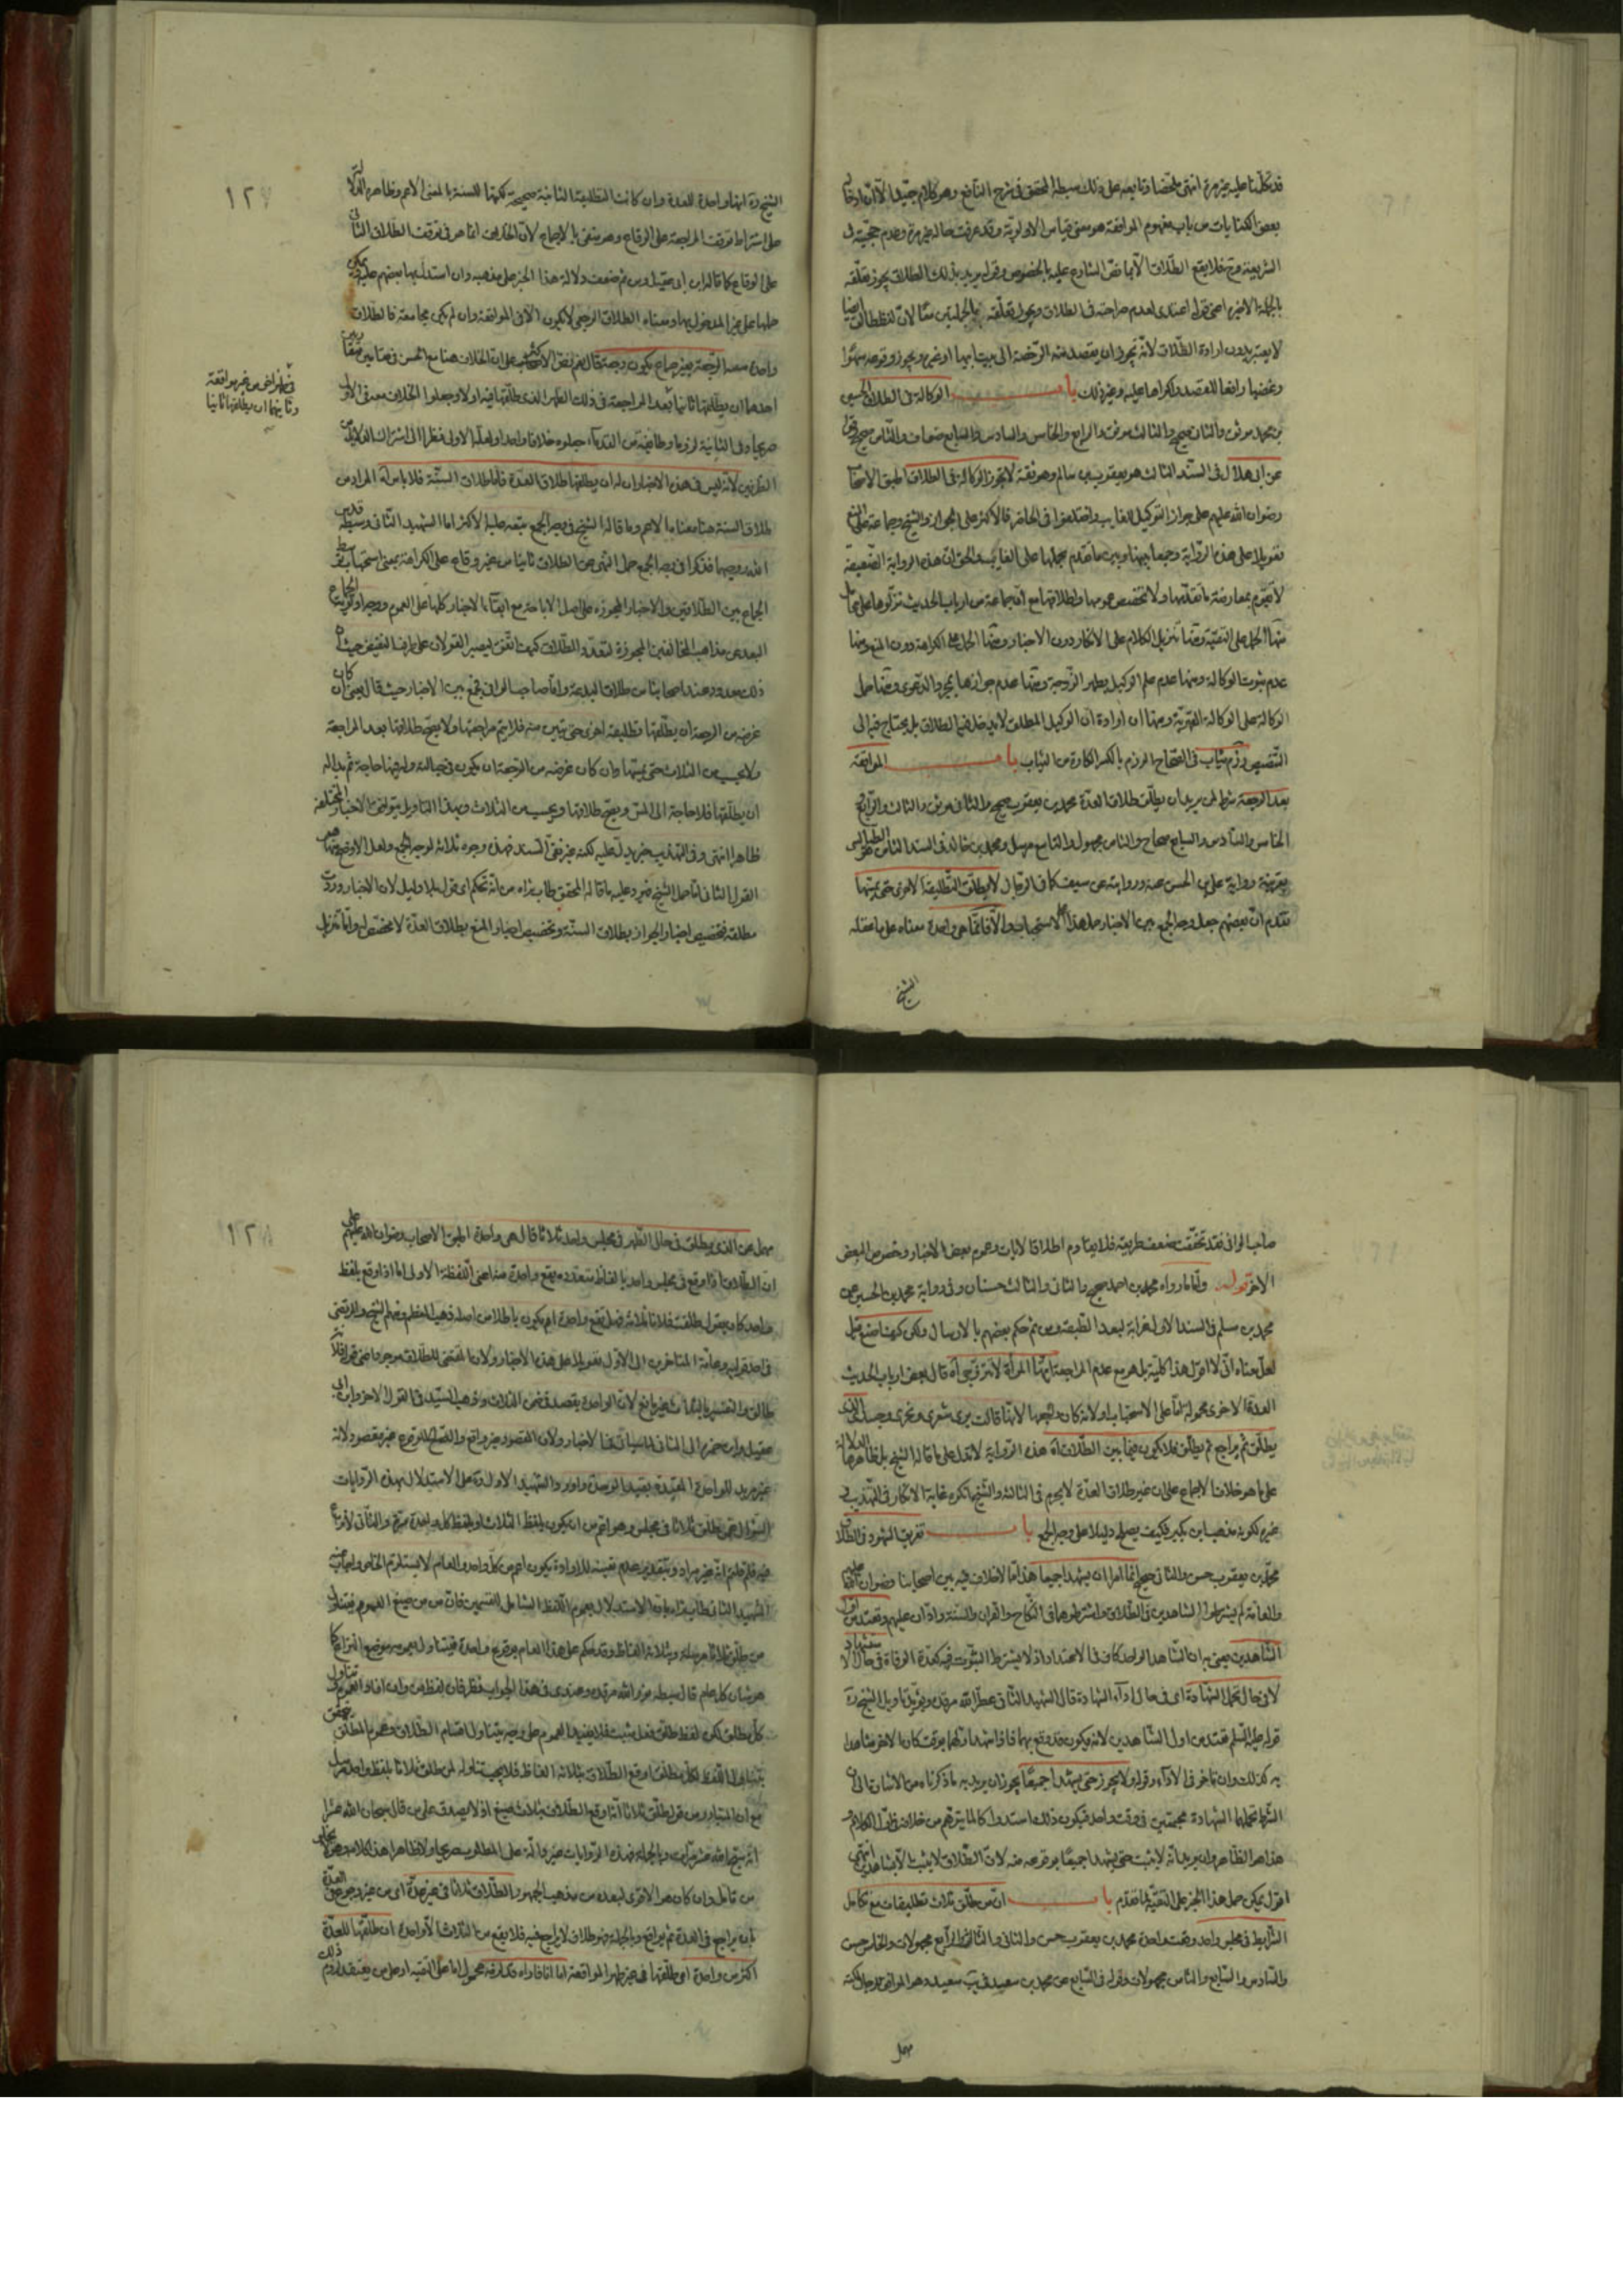 قد تكلّمنا عليه غير مرة انتهى ملخّصا وتابعه على ذلك سبطه المحقق في شرح النافع وهو كلام جيّد الّا انّ ادخال
بعض الكنايات من باب مفهوم الموافقة هو معنى قياس الاولوية وقد عرفت حاله غير مرة وعدم حجيته في
الشريعة فلا يقع الطلاق الّا بما نصّ الشارع عليه بالخصوص وقوله يريد بذلك الطلاق يجوز تعلّقه
بالجملة الاخيرة اعنى قوله اعتدى لعدم صراحته في الطلاق ويجوز تعلّقه بالجملتين معًا لانّ لفظ طالق ايضا
لا يعتبر بدون ارادة الطلاق لانّه يجوز ان يقصد منه الرخصة الى بيت ابيها او غيره ويجوز وقوعه سهوًا
وغضبا رافعا للقصد واكراها عليه وغير ذلك باب الوكالة في الطلاق الحسين
بن محمد موثق والثاني صحيح والثالث موثق والرابع والخامس والسادس والسابع ضعاف والثامن صحيح وقوله
عن ابى هلال في السند الثالث هو يعقوب بن سالم وهو ثقة لا تجوز الوكالة في الطلاق اطبق الاصحاب
رضوان الله عليهم على جواز التوكيل للغايب واختلفوا في الحاضر فالاكثر على الجواز والشيخ وجماعة على المنع
تعويلا على هذه الرواية وجمعا بينها وبين ما تقدم بحملها على الغائب والحق ان هذه الرواية الضعيفة
لا تقوم بمعارضة ما تقدّمها ولا تخصيص عمومها واطلاقها مع انّ جماعة من ارباب الحديث نزّلوها على محامل
منها الحمل على التقيّة ومنها تنزيل الكلام على الانكار دون الاخبار ومنها الحمل على الكراهة دون المنع ومنها
عدم ثبوت الوكالة ومنها عدم علم الوكيل بطهر الزوجة ومنها عدم جوازها بمجرد الدعوى ومنها حمل
الوكالة على الوكالة القهريّة ومنها ان ارادة ان الوكيل المطلق لا يدخل فيها الطلاق بل يحتاج فيه الى
التنصيص رزم ثياب في الصّحاح الرزم بالكسر الكارة من الثياب باب المواقعة
بعد الرجعة شرط لمن يريد ان يطلّق طلاق العدّة محمد بن يعقوب صحيح والثاني موثق والثالث والرابع و
الخامس والسادس والسابع صحاح والثامن مجهول والتاسع مرسل ومحمد بن خالد في السند الثامن هو الطيالسى
بقرينة رواية على بن الحسن عنه وروايته عن سيف كما في الرجال لا يطلّق التطليقة الاخرى حتى يمسّها
تقدّم انّ بعضهم جعل وجه الجمع بين الاخبار حمل هذا على الاستحباب والّا فانّما هى واحدة معناه على ما عقله
الشيخ
١٢٧
الشيخ ره انها واحدة للعدة وان كانت التطليقة الثانية صحيحة لكنها للسنة بالمعنى الاعم وظاهره الدّلالة
على اشتراط توقف المراجعة على الوقاع وهو منفى بالاجماع لان الخلاف انما هو في توقف الطلاق الثاني
على الوقاع كما قاله ابن ابى عقيل ومن ثم ضعف دلالة هذا الخبر على مذهبه وان استدل بها بعضهم عليه ويمكن
حملها على غير المدخول بها ومعناه الطلاق الرجعى لا يكون الّا في المواقعة وان لم يكن مجامعة فالطلاق
واحد معه الرجعة بغير جماع يكون رجعة قال نعم نصّ الاكثر على ان الخلاف هنا مع الحسن في مقامين
احدها ان يطلّقها ثانيا بعد المراجعة في ذلك الطهر الذى طلّقها فيه اوّلا وجعلوا الخلاف معه في الاولى
صريحا وفي الثانية لزوما وطائفة من القدماء جعلوه خلافا واحدا ولعلّه الاولى نظرا الى اشتراك الدلايل من
الطرفين لانّه ليس في هذه الاخبار ان له ان يطلّقها طلاق العدة فاما طلاق السنّة فلا باس آه المراد من
طلاق السنة هنا معناه الاعم وما قاله الشيخ في وجه الجمع تبعه عليه الاكثر اما الشهيد الثاني وسبطه قدس
الله روحهما فذكرا في وجه الجمع حمل النهى عن الطلاق ثانيا من غير وقاع على الكراهة بمعنى استحباب توسط
الجماع بين الطلاقين والاخبار المجوزة على اصل الاباحة مع ابقاء الاخبار كلها على العموم ووجه اولوية الجماع
البعد عن مذاهب المخالفين المجوزة لتعدّد الطلاق كيف اتّفق ليصير القولان على طرف النقيض حيث انّ
ذلك معدود عند اصحابنا من طلاق البدعة وامّا صاحب الوافي فجمع بين الاخبار حيث قال يعنى ان كان
غرضه من الرجعة ان يطلّقها تطليقة اخرى حتى تبين منه فلا يتم مراجعتها ولا يصحّ طلاقها بعد المراجعة
ولا يحسب من الثلاث حتى يمسّها وان كان غرضه من الرّجعة ان يكون في حبالته وله فيها حاجة ثم بدا له
ان يطلّقها فلا حاجة الى المسّ ويصحّ طلاقها ويحسب من الثلاث وبهذا التاويل يتوافق الاخبار المختلفة
ظاهرا انتهى وفي التهذيب خبر يدلّ عليه لكنه غير نقى السند فهذه وجوه ثلاثة لوجه الجمع ولعل الاوضح منها هو
القول الثاني امّا حمل الشيخ فيرد عليه ما قاله المحقق طاب ثراه من انّه تحكم اى قول بلا دليل لان الاخبار وردت
مطلقة فتخصيص اخبار الجواز بطلاق السنّة وتخصيص اخبار المنع بطلاق العدّة لا مخصّص له وامّا تنزيل
في طهر اخر من غير مواقعة
وثانيهما ان يطلقها ثانيا
صاحب الوافي فقد تحققت ضعف طريقه فلا يقاوم اطلاق الايات وعموم بعض الاخبار وخصوص البعض
الاخر قوله وامّا ما رواه محمد بن احمد صحيح والثاني والثالث حسنان وفي رواية محمد بن الحسين عن
محمد بن مسلم في السند الاول غرابة لبعد الطبقة ومن ثم حكم بعضهم بالارسال ولكن كيف اصنع قيل
لعلّ معناه انّى لا اقول هذا كليّة بل هو مع عدم المراجعة ايّتها المرأة لا تتزوجى آه قال بعض ارباب الحديث
العدة الاخرى محمولة امّا على الاستحباب او لانه كان راجعها لانها قالت يرى شعرى ونحرى وجسدى الذى
يطلّق ثم يراجع ثم يطلّق فلا يكون فيما بين الطلاق آه هذه الرّواية لا تدل على ما قاله الشيخ بل ظاهرها الدلالة
على ما هو خلاف الاجماع على ان غير طلاق العدّة لا يحرم في الثالثة والشيخ انكره غاية الانكار في التهذيب و
غيره لكونه مذهب ابن بكير فكيف يصلح دليلا على وجه الجمع باب تفريق الشهود في الطلاق
محمّد بن يعقوب حسن والثاني صحيح انّما امرا ان يشهدا جميعا هذا ممّا لا خلاف فيه بين اصحابنا رضوان الله عليهم
والعامّة لم يشترطوا الشاهدين في الطلاق واشترطوهما في النّكاح والقران والسنة وارد ان عليهم وتعتد من اول
الشاهدين يعنى به ان الشاهد الواحد كاف في الاعتداد اذ لا يشترط الثبوت فيه كعدّة الوفاة في حال الاستشهاد
لا في حال تحمل الشّهادة اى في حال اداء الشهادة قال الشهيد الثاني عطّر الله مرقده ويؤيّد تاويل الشيخ ره
قوله عليه السلم فتعتد من اول الشاهدين لانه يكون قد وقع بهما فاذا شهد اولهما بوقت كان الاخر شاهدا
به كذلك وان تاخر في الاداء وقوله ولا يجوز حتى يشهدا جميعًا يجوز ان يريد به ما ذكرناه من الاشارة الى ان
الشرط تحملهما الشهادة مجتمعين في وقت واحد فيكون ذلك استدراكا لما يتوهم من خلاف ظهر الكلام و
هذا هو الظاهر وان يريد انّه لا يثبت حتى يشهدا جميعًا بوقوعه منه لان الطّلاق لا يثبت الّا بشاهدين انتهى
اقول يمكن حمل هذا الخبر على التقيّة لما تقدّم باب انّ من طلّق ثلاث تطليقات مع تكامل
الشرايط في مجلس واحد وقعت واحدة محمد بن يعقوب حسن والثاني والثالث والرابع مجهولات والخامس حسن
والسادس والسابع والثامن مجهولات وقوله في السابع عن محمد بن سعيد في يب سعيد وهو الموافق للرجال لكنه
مهمل
١٢٨
مهمل عن الذى يطلق في حال الطّهر في مجلس واحد ثلاثا قال هى واحدة اطبق الاصحاب رضوان الله عليهم على
انّ الطّلاق اذا وقع في مجلس واحد بالفاظ متعدده يقع واحدة منه اعنى اللّفظة الاولى اما اذا وقع بلفظ
واحد كان يقول طلقت فلانة ثلاثة فهل يقع واحدة ام يكون باطلا من اصله ذهب المعظم ومنهم الشيخ والمرتضى
في احد قوليه وعامّة المتاخرين الى الاوّل تعويلا على هذه الاخبار ولان المقتضى للطّلاق موجود اعنى قوله فلانة
طالق والتفسير بالثلاث غير مانع لانّ الواحدة يقصد في ضمن الثلاث وذهب السيّد في القول الاخر وابن ابى
عقيل وابن حمزة الى الثاني لما سياتى في الاخبار ولان المقصود غير واقع والواقع غير مقصود لانّه
غير مريد للواحدة المقيّدة بقيد الوحدة واورد الشهيد الاول ره على الاستدلال بهذه الرّوايات
السّؤال عمن طلّق ثلاثا في مجلس وهو اعم من ان يكون بلفظ الثلاث او بلفظ كل واحدة مرّة والثّانى لا نزاع
فيه فلم قلتم انّه غير مراد وبتقدير عدم تعيينه للارادة يكون اعم من كلّ واحد والعام لا يستلزم الخاص واجاب عنه
الشهيد الثاني طاب ثراه بان الاستدلال بعموم اللّفظ الشامل للقسمين فانّ من من صيغ العموم فيتناول
من طلّق ثلاثا مرسلة وبثلاثة الفاظ وقد حكم على هذا العام بوقوع واحدة فيتناول بعمومه موضع النزاع كما
هو شان كل عام قال سبطه نور الله مرقده وعندى في هذا الجواب نظر فان لفظ من وان افاد العموم تناول
كل مطلق لكن لفظ طلّق فعل مثبت فلا يفيد العموم على وجه يتناول اقسام الطّلاق وعموم المطلق يتحقق
بتناول اللفظ لكل مطلق اوقع الطّلاق بثلاثة الفاظ فلا يجب تناوله لمن طلق ثلاثا بلفظ واحد
مع ان المتبادر من قوله طلّق ثلاثا انّه اوقع الطّلاق بثلاث صيغ اذ لا يصدق على من قال سبحان الله عشرا
انّه سبّح الله عشر مرّات وبالجملة فهذه الرّوايات غير دالّة على المطلوب صريحا ولا ظاهرا هذا كلامه وهو لا يخلو
من تامل وان كان هو الاقوى لبعده من مذهب الجمهور والطّلاق ثلاثا في غير عدّة اى من غير رجوع في العدّة
بان يراجع في العدة ثم يواقع وبالجملة فهو طلاق لا يراجع فيه فلا يقع من الثلاث الّا واحدة ان طلّقها للعدّة
اكثر من واحدة اى طلّقها في غير طهر المواقعة اما انا فاراه قد لزمه محمول اما على التقيه او على من يعتقد لزوم ذلك